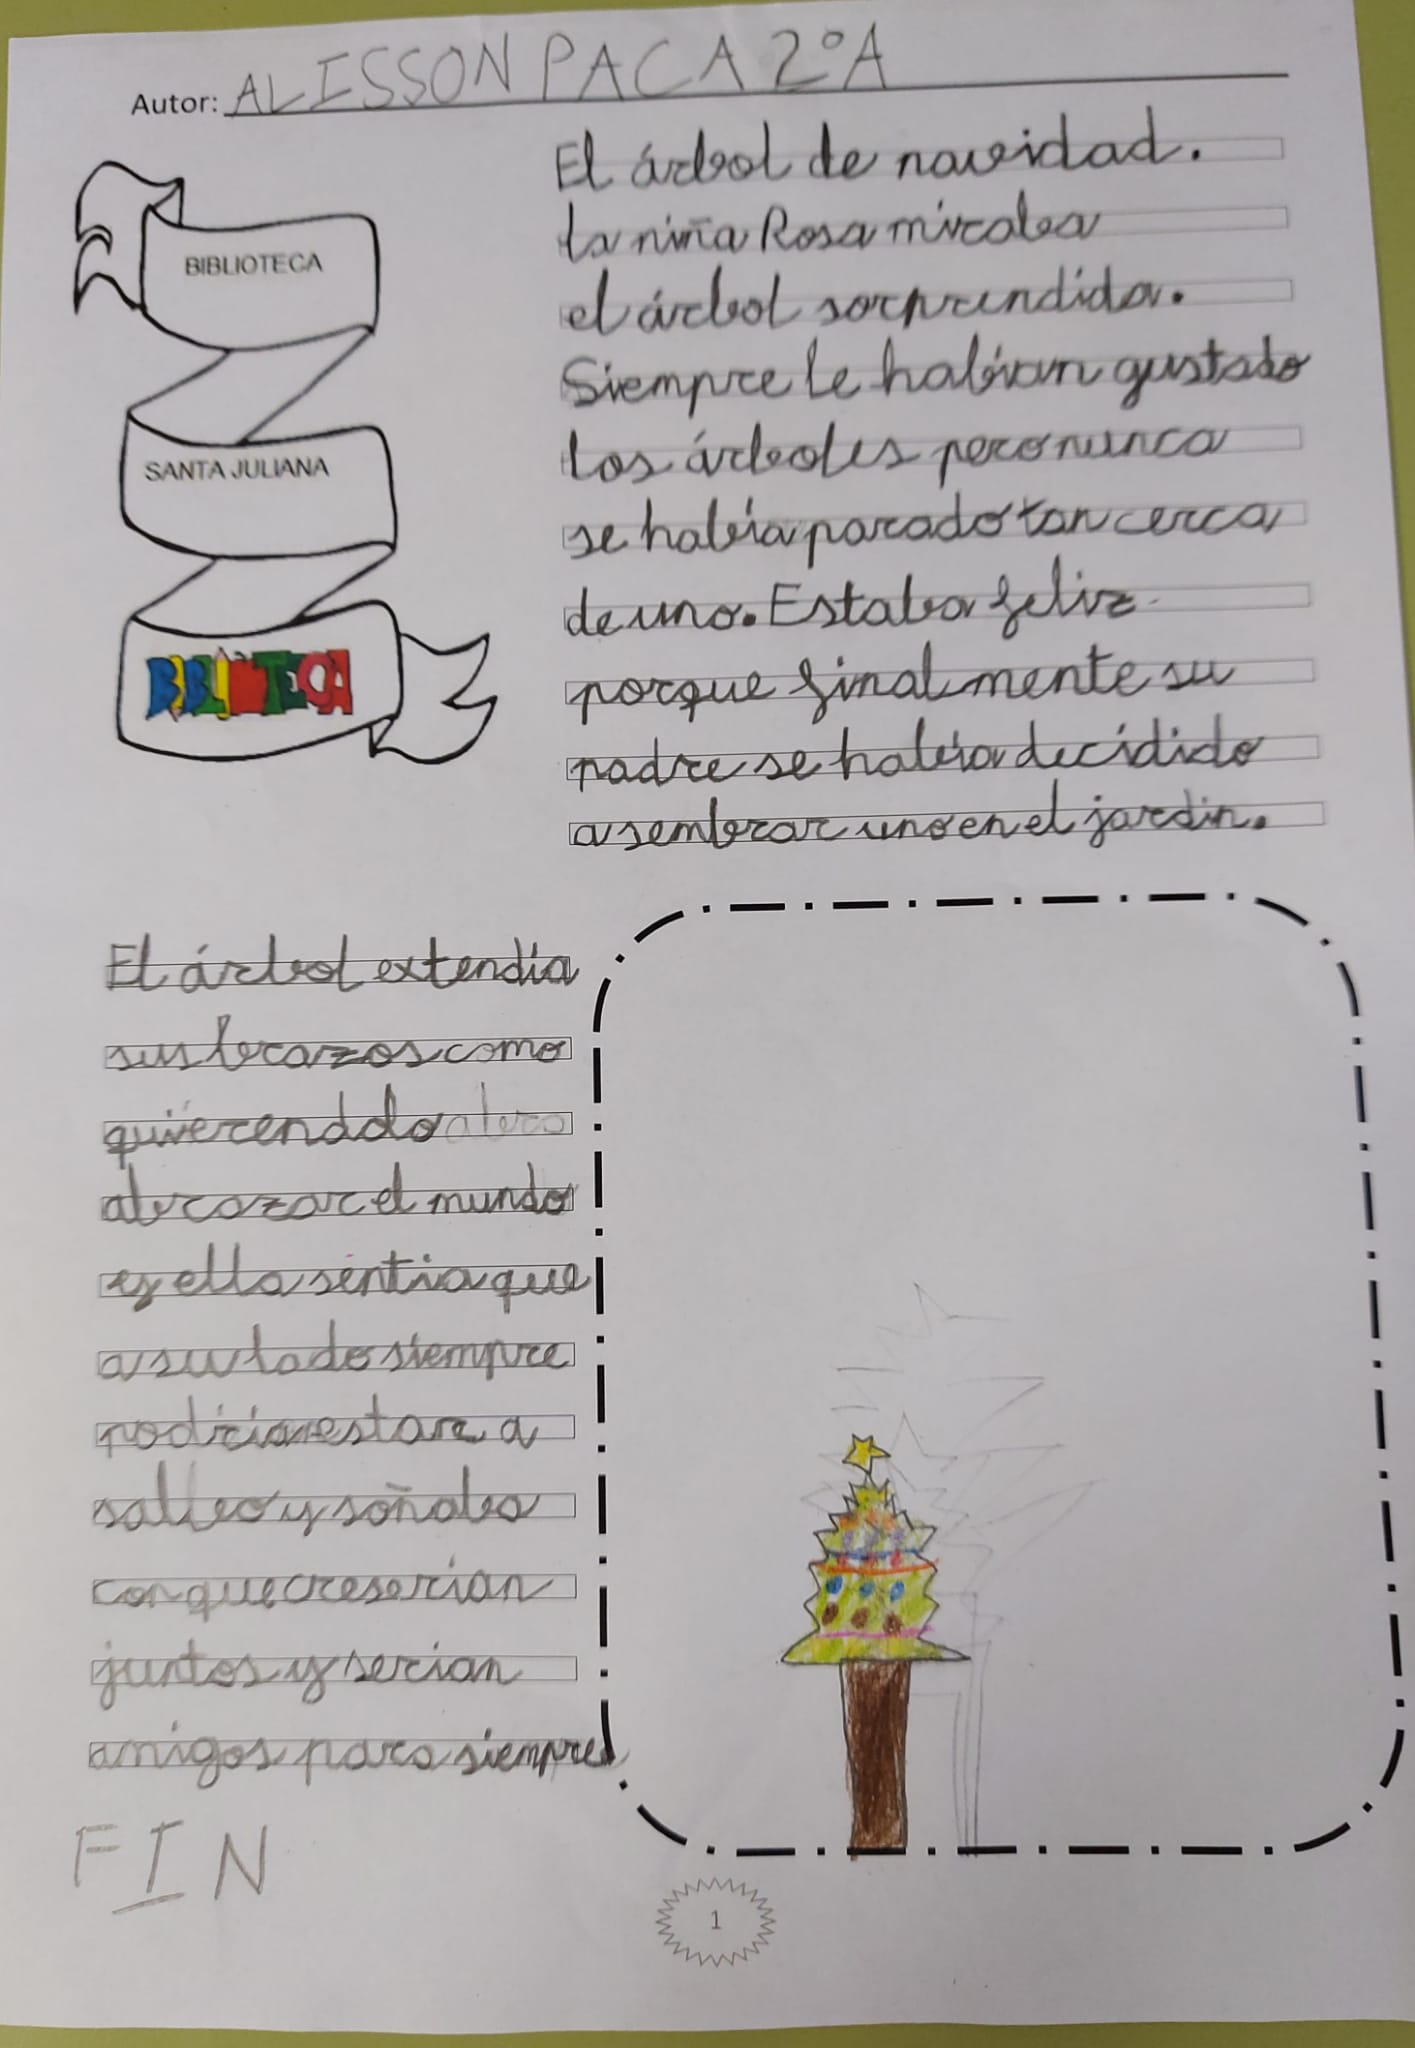 Autor: ALISSON PACA 2ºA
BIBLIOTECA
SANTA JULIANA
BIBLIOTECA
El árbol de navidad.
la niña Rosa miraba
el árbol sorprendida.
Siempre le habían gustado
los árboles pero nunca
se había parado tan cerca
de uno. Estaba feliz
porque finalmente su
padre se había decidido
a sembrar uno en el jardin.
El árbol extendía
sus brazos como
quierendo abra
abrazar el mundo
y ella sentia que
a su lado siempre
podria estar a
salvo y soñaba
con que creserian
juntos y serian
amigos para siempre
FIN
1